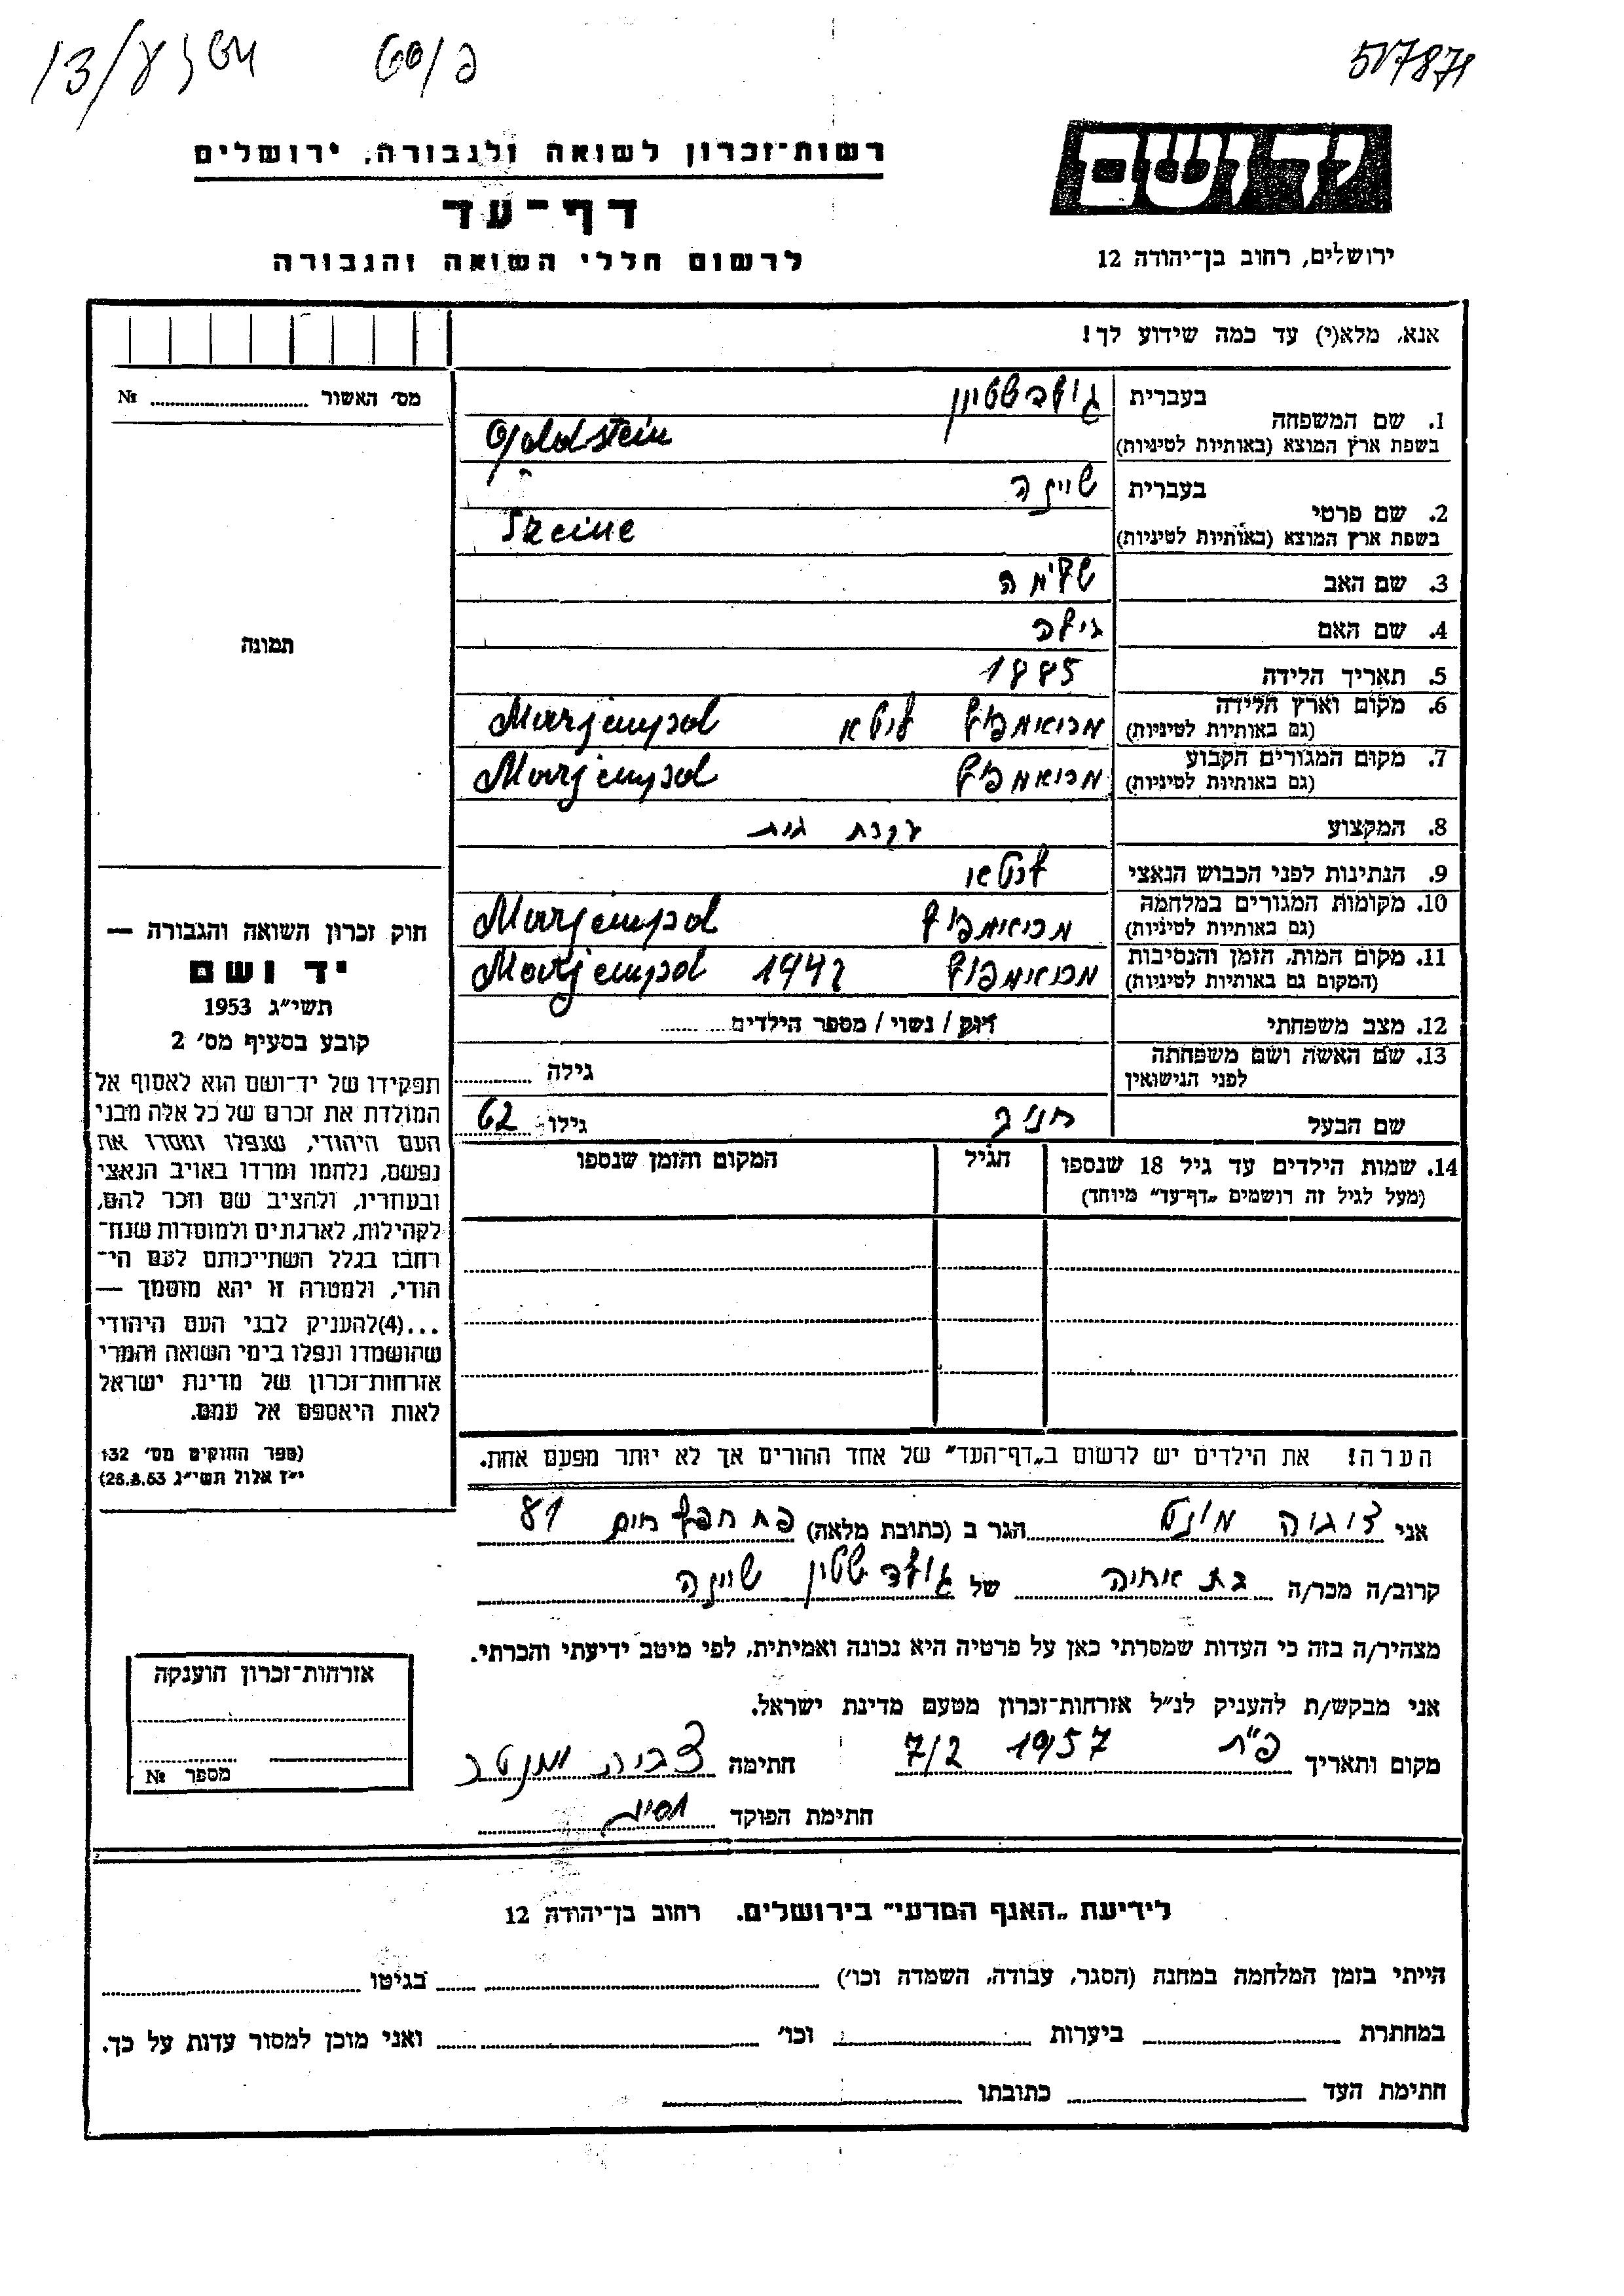 517871
יד ושם
ירושלים, רחוב בן־יהודה 12
רשות־זכרון לשואה ולגבורה, ירושלים
דף־עד
לרשום חללי השואה והגבורה
אנא, מלא(י) עד כמה שידוע לך!
מס׳ האשור № 
1. שם המשפחה
בעברית גולדשטיין
בשפת ארץ המוצא (באותיות לטיניות) Goldstein
2. שם פרטי
בעברית שיינה
בשפת ארץ המוצא (באותיות לטיניות)
3. שם האב
שלימה
4. שם האם
גולה
5. תאריך הלידה
1885
6. מקום וארץ הלידה
(גם באותיות לטיניות)
מריאמפול ליטא Marjempol
7. מקום המגורים הקבוע
(גם באותיות לטיניות)
מריאמפול Marjempol
8. המקצוע
עקרת בית
9. הנתינות לפני הכבוש הנאצי
ליטאי
10. מקומות המגורים במלחמה
(גם באותיות לטיניות)
מריאמפול Marjempol
11. מקום המות, הזמן והנסיבות
(המקום גם באותיות לטיניות)
מריאמפול 1942 Marjempol
12. מצב משפחתי
רווק / נשוי / מספר הילדים
13. שם האשה ושם משפחתה
לפני הנישואין
גילה
שם הבעל
גילו 62
14. שמות הילדים עד גיל 18 שנספו
(מעל לגיל זה רושמים „דף־עד" מיוחד)
הגיל
המקום והזמן שנספו
הערה! את הילדים יש לרשום ב„דף־העד" של אחד ההורים אך לא יותר מפעם אחת.
תמונה
חוק זכרון השואה והגבורה —
יד ושם
תשי״ג 1953
קובע בסעיף מס׳ 2
תפקידו של יד־ושם הוא לאסוף אל
המולדת את זכרם של כל אלה מבני
העם היהודי, שנפלו ומסרו את
נפשם, נלחמו ומרדו באויב הנאצי
ובעוזריו, ולהציב שם וזכר להם,
לקהילות, לארגונים ולמוסדות שנח־
רבו בגלל השתייכותם לעם הי־
הודי, ולמטרה זו יהא מוסמך —
...(4)להעניק לבני העם היהודי
שהושמדו ונפלו בימי השואה והמרי
אזרחות־זכרון של מדינת ישראל
לאות היאספם אל עמם.
(ספר החוקים מס׳ 132
י״ז אלול תשי״ג 28.8.53)
אני הגר ב (כתובת מלאה) פת חפץ חיים 81
קרוב/ה מכר/ה בת אחיה של גולדשטין שיינה
מצהיר/ה בזה כי העדות שמסרתי כאן על פרטיה היא נכונה ואמיתית, לפי מיטב ידיעתי והכרתי.
אני מבקש/ת להעניק לנ״ל אזרחות־זכרון מטעם מדינת ישראל.
מקום ותאריך פ״ת 1957 7/2 חתימה
חתימת הפוקד
אזרחות־זכרון הוענקה
מספר №
לידיעת „האגף המדעי" בירושלים. רחוב בן־יהודה 12
הייתי בזמן המלחמה במחנה (הסגר, עבודה, השמדה וכו׳) בגיטו
במחתרת ביערות וכו׳ ואני מוכן למסור עדות על כך.
חתימת העד כתובתו